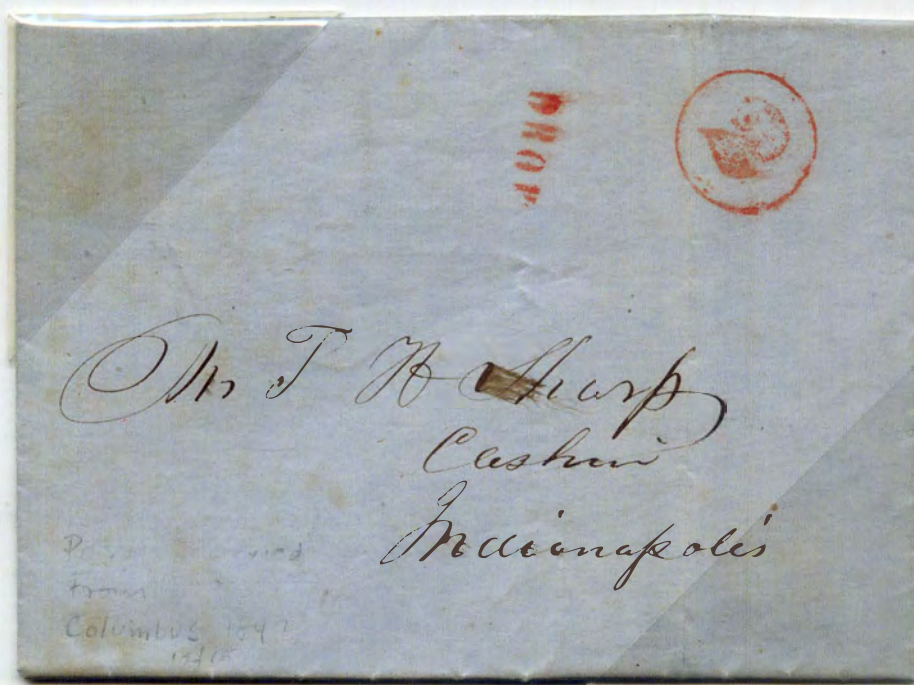 DROP
2
Mr T H Sharp
Cashier
Indianapolis
From
Columbus 184?